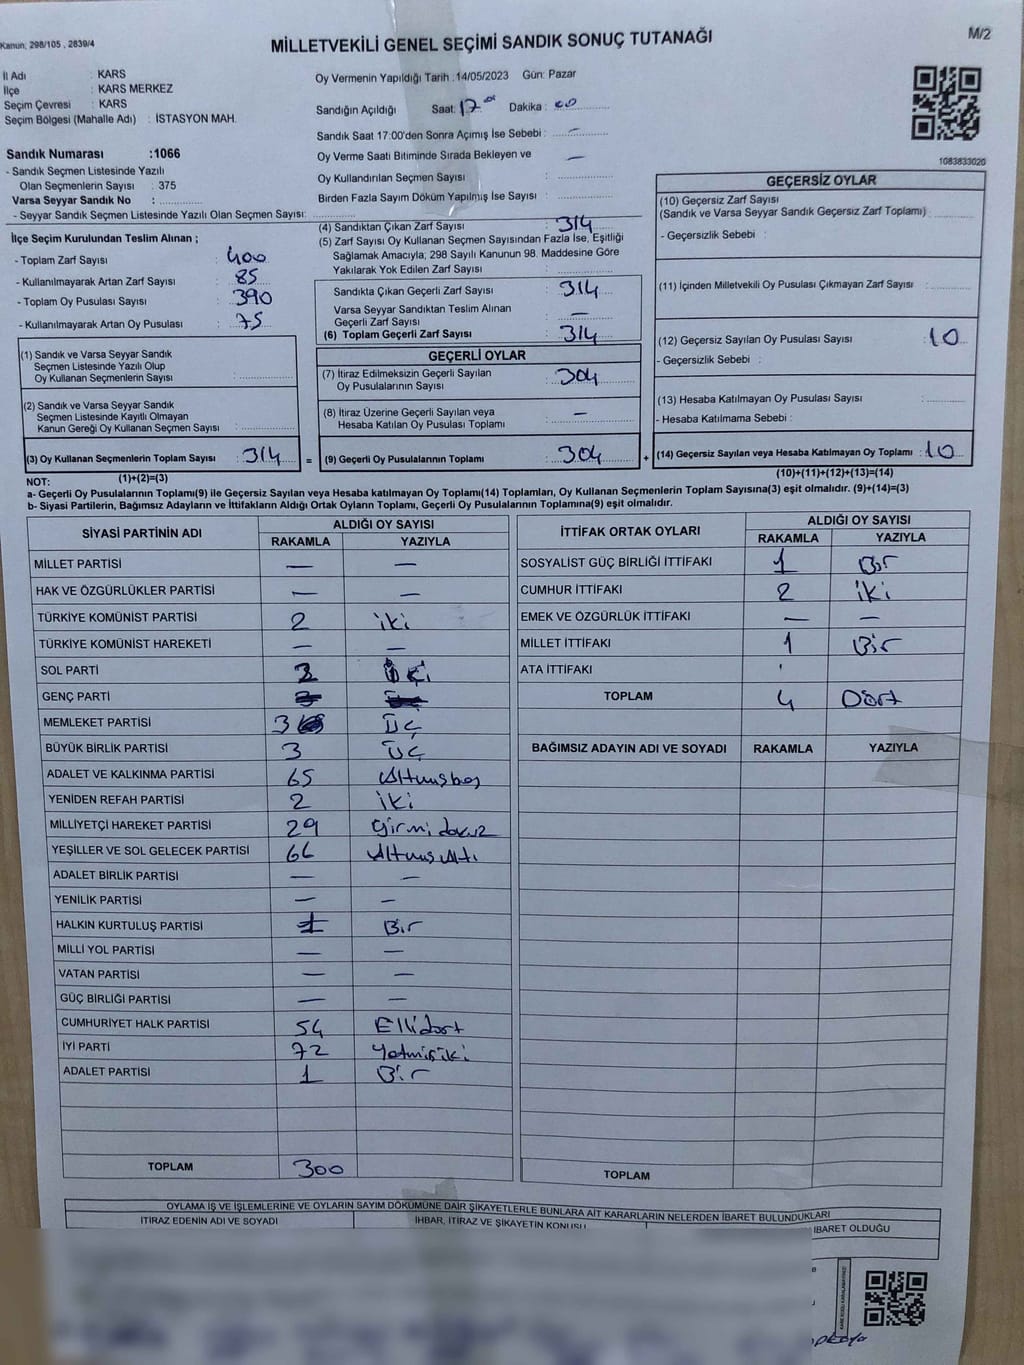 Kanun, 298/105 , 2839/4
MİLLETVEKİLİ GENEL SEÇİMİ SANDIK SONUÇ TUTANAĞI
M/2
İl Adı : KARS
İlçe : KARS MERKEZ
Seçim Çevresi : KARS
Seçim Bölgesi (Mahalle Adı) : İSTASYON MAH.
Sandık Numarası :1066
- Sandık Seçmen Listesinde Yazılı
Olan Seçmenlerin Sayısı : 375
Varsa Seyyar Sandık No :
- Seyyar Sandık Seçmen Listesinde Yazılı Olan Seçmen Sayısı:
Oy Vermenin Yapıldığı Tarih :14/05/2023 Gün: Pazar
Sandığın Açıldığı Saat: 17 00 Dakika : 00
Sandık Saat 17:00'den Sonra Açımış İse Sebebi : —
Oy Verme Saati Bitiminde Sırada Bekleyen ve
Oy Kullandırılan Seçmen Sayısı : —
Birden Fazla Sayım Döküm Yapılmış İse Sayısı :
1083833020
İlçe Seçim Kurulundan Teslim Alınan ;
- Toplam Zarf Sayısı : 400
- Kullanılmayarak Artan Zarf Sayısı : 85
- Toplam Oy Pusulası Sayısı : 390
- Kullanılmayarak Artan Oy Pusulası : 75
(1) Sandık ve Varsa Seyyar Sandık
Seçmen Listesinde Yazılı Olup
Oy Kullanan Seçmenlerin Sayısı :
(2) Sandık ve Varsa Seyyar Sandık
Seçmen Listesinde Kayıtlı Olmayan
Kanun Gereği Oy Kullanan Seçmen Sayısı :
(3) Oy Kullanan Seçmenlerin Toplam Sayısı : 314
(1)+(2)=(3)
(4) Sandıktan Çıkan Zarf Sayısı : 314
(5) Zarf Sayısı Oy Kullanan Seçmen Sayısından Fazla İse, Eşitliği
Sağlamak Amacıyla; 298 Sayılı Kanunun 98. Maddesine Göre
Yakılarak Yok Edilen Zarf Sayısı :
Sandıkta Çıkan Geçerli Zarf Sayısı : 314
Varsa Seyyar Sandıktan Teslim Alınan
Geçerli Zarf Sayısı : —
(6) Toplam Geçerli Zarf Sayısı : 314
GEÇERLİ OYLAR
(7) İtiraz Edilmeksizin Geçerli Sayılan
Oy Pusulalarının Sayısı : 304
(8) İtiraz Üzerine Geçerli Sayılan veya
Hesaba Katılan Oy Pusulası Toplamı : —
= (9) Geçerli Oy Pusulalarının Toplamı : 304
GEÇERSİZ OYLAR
(10) Geçersiz Zarf Sayısı
(Sandık ve Varsa Seyyar Sandık Geçersiz Zarf Toplamı) :
- Geçersizlik Sebebi :
(11) İçinden Milletvekili Oy Pusulası Çıkmayan Zarf Sayısı :
(12) Geçersiz Sayılan Oy Pusulası Sayısı : 10
- Geçersizlik Sebebi :
(13) Hesaba Katılmayan Oy Pusulası Sayısı :
- Hesaba Katılmama Sebebi :
+ (14) Geçersiz Sayılan veya Hesaba Katılmayan Oy Toplamı : 10
(10)+(11)+(12)+(13)=(14)
NOT:
a- Geçerli Oy Pusulalarının Toplamı(9) ile Geçersiz Sayılan veya Hesaba katılmayan Oy Toplamı(14) Toplamları, Oy Kullanan Seçmenlerin Toplam Sayısına(3) eşit olmalıdır. (9)+(14)=(3)
b- Siyasi Partilerin, Bağımsız Adayların ve İttifakların Aldığı Ortak Oyların Toplamı, Geçerli Oy Pusulalarının Toplamına(9) eşit olmalıdır.
SİYASİ PARTİNİN ADI ALDIĞI OY SAYISI
RAKAMLA YAZIYLA
MİLLET PARTİSİ — —
HAK VE ÖZGÜRLÜKLER PARTİSİ — —
TÜRKİYE KOMÜNİST PARTİSİ 2 iki
TÜRKİYE KOMÜNİST HAREKETİ — —
SOL PARTİ 2 iki
GENÇ PARTİ
MEMLEKET PARTİSİ 3 Üç
BÜYÜK BİRLİK PARTİSİ 3 Üç
ADALET VE KALKINMA PARTİSİ 65 Altmışbeş
YENİDEN REFAH PARTİSİ 2 iki
MİLLİYETÇİ HAREKET PARTİSİ 29 Yirmi dokuz
YEŞİLLER VE SOL GELECEK PARTİSİ 66 Altmış Altı
ADALET BİRLİK PARTİSİ — —
YENİLİK PARTİSİ — —
HALKIN KURTULUŞ PARTİSİ 1 Bir
MİLLİ YOL PARTİSİ — —
VATAN PARTİSİ — —
GÜÇ BİRLİĞİ PARTİSİ — —
CUMHURİYET HALK PARTİSİ 54 Ellidört
İYİ PARTİ 72 Yetmişiki
ADALET PARTİSİ 1 Bir
TOPLAM 300
İTTİFAK ORTAK OYLARI ALDIĞI OY SAYISI
RAKAMLA YAZIYLA
SOSYALİST GÜÇ BİRLİĞİ İTTİFAKI 1 Bir
CUMHUR İTTİFAKI 2 iki
EMEK VE ÖZGÜRLÜK İTTİFAKI — —
MİLLET İTTİFAKI 1 Bir
ATA İTTİFAKI
TOPLAM 4 Dört
BAĞIMSIZ ADAYIN ADI VE SOYADI RAKAMLA YAZIYLA
TOPLAM
OYLAMA İŞ VE İŞLEMLERİNE VE OYLARIN SAYIM DÖKÜMÜNE DAİR ŞİKAYETLERLE BUNLARA AİT KARARLARIN NELERDEN İBARET BULUNDUKLARI
İTİRAZ EDENİN ADI VE SOYADI İHBAR, İTİRAZ VE ŞİKAYETİN KONUSU İBARET OLDUĞU